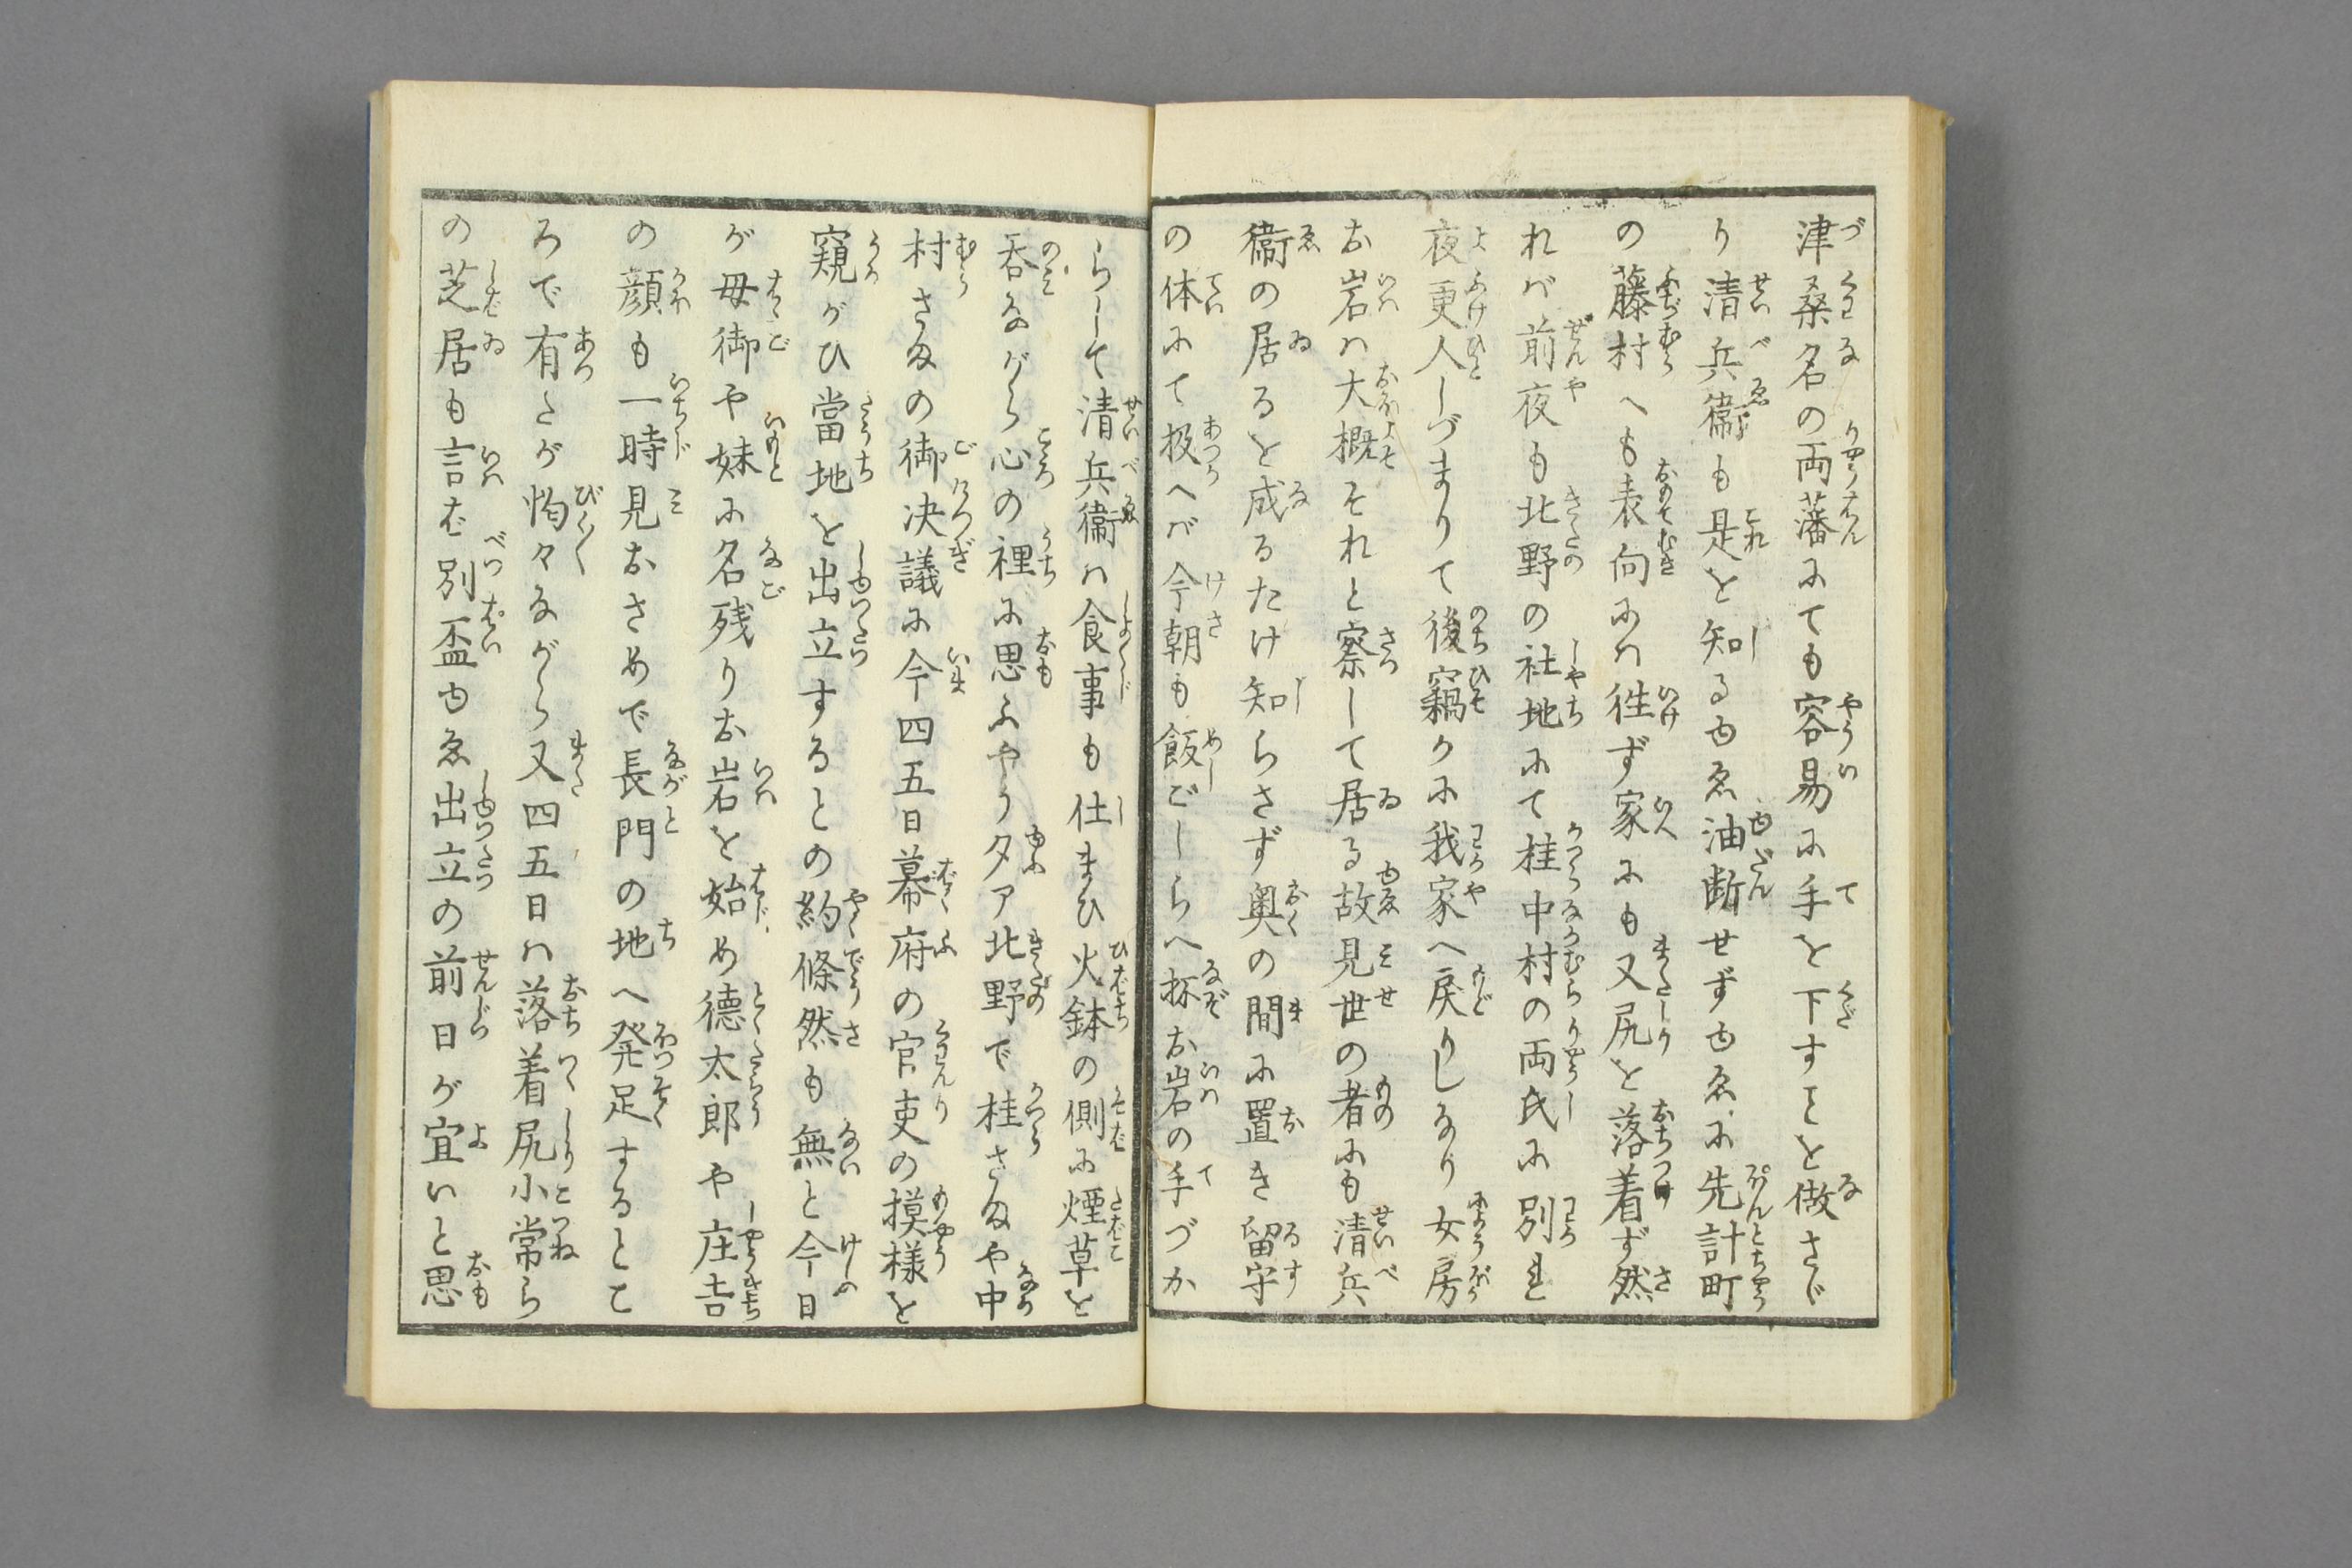 津桑名の両藩にても容易に手を下すことを做さじ
り清兵衞も是を知るゆゑ油断せずゆゑに先計町
の藤村へも表向には徃ず家にも又尻を落着ず然
れバ前夜も北野の社地にて桂中村の両氏に別れ
夜更人しづまりて後竊かに我家へ戻りしなり女房
お岩ハ大概それと察して居る故見世の者にも清兵
衞の居るを成るたけ知らさず奥の間に置き留守
の体にて扱へバ今朝も飯ごしらへ抔お岩の手づか
らして清兵衞ハ食事も仕まひ火鉢の側に煙草を
呑ながら心の裡に思ふやう夕ア北野で桂さまや中
村さまの御决議に今四五日幕府の官吏の摸様を
窺がひ當地を出立するとの約條然も無と今日
が母御や妹に名残りお岩を始め德太郎や庄吉
の顔も一時見おさめで長門の地へ発足するとこ
ろで有たが恟々ながら又四五日ハ落着尻小常ら
の芝居も言ば別盃ゆゑ出立の前日が宜いと思